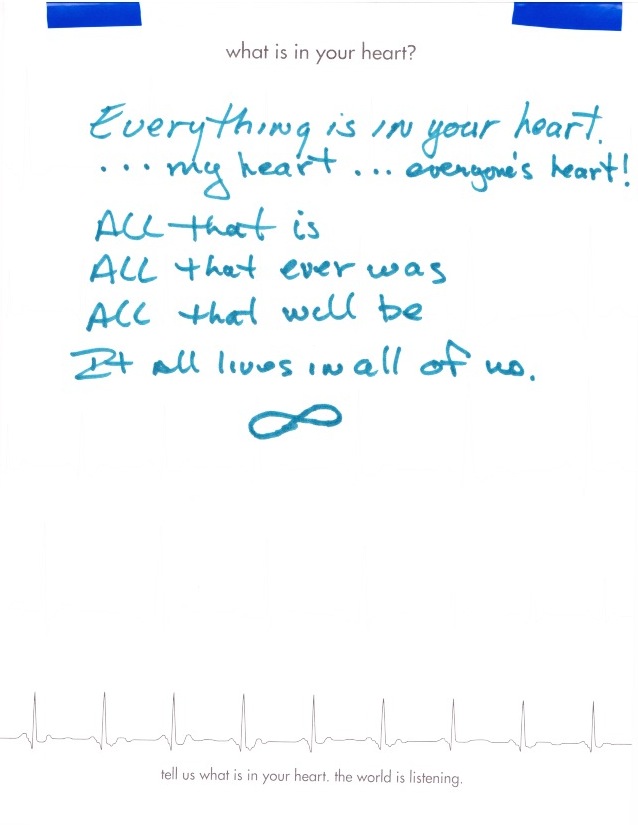 what is in your heart?
Everything is in your heart.
... my heart ... everyone's heart!
ALL that is
ALL that ever was
ALL that will be
It all lives in all of us.
∞
tell us what is in your heart. the world is listening.